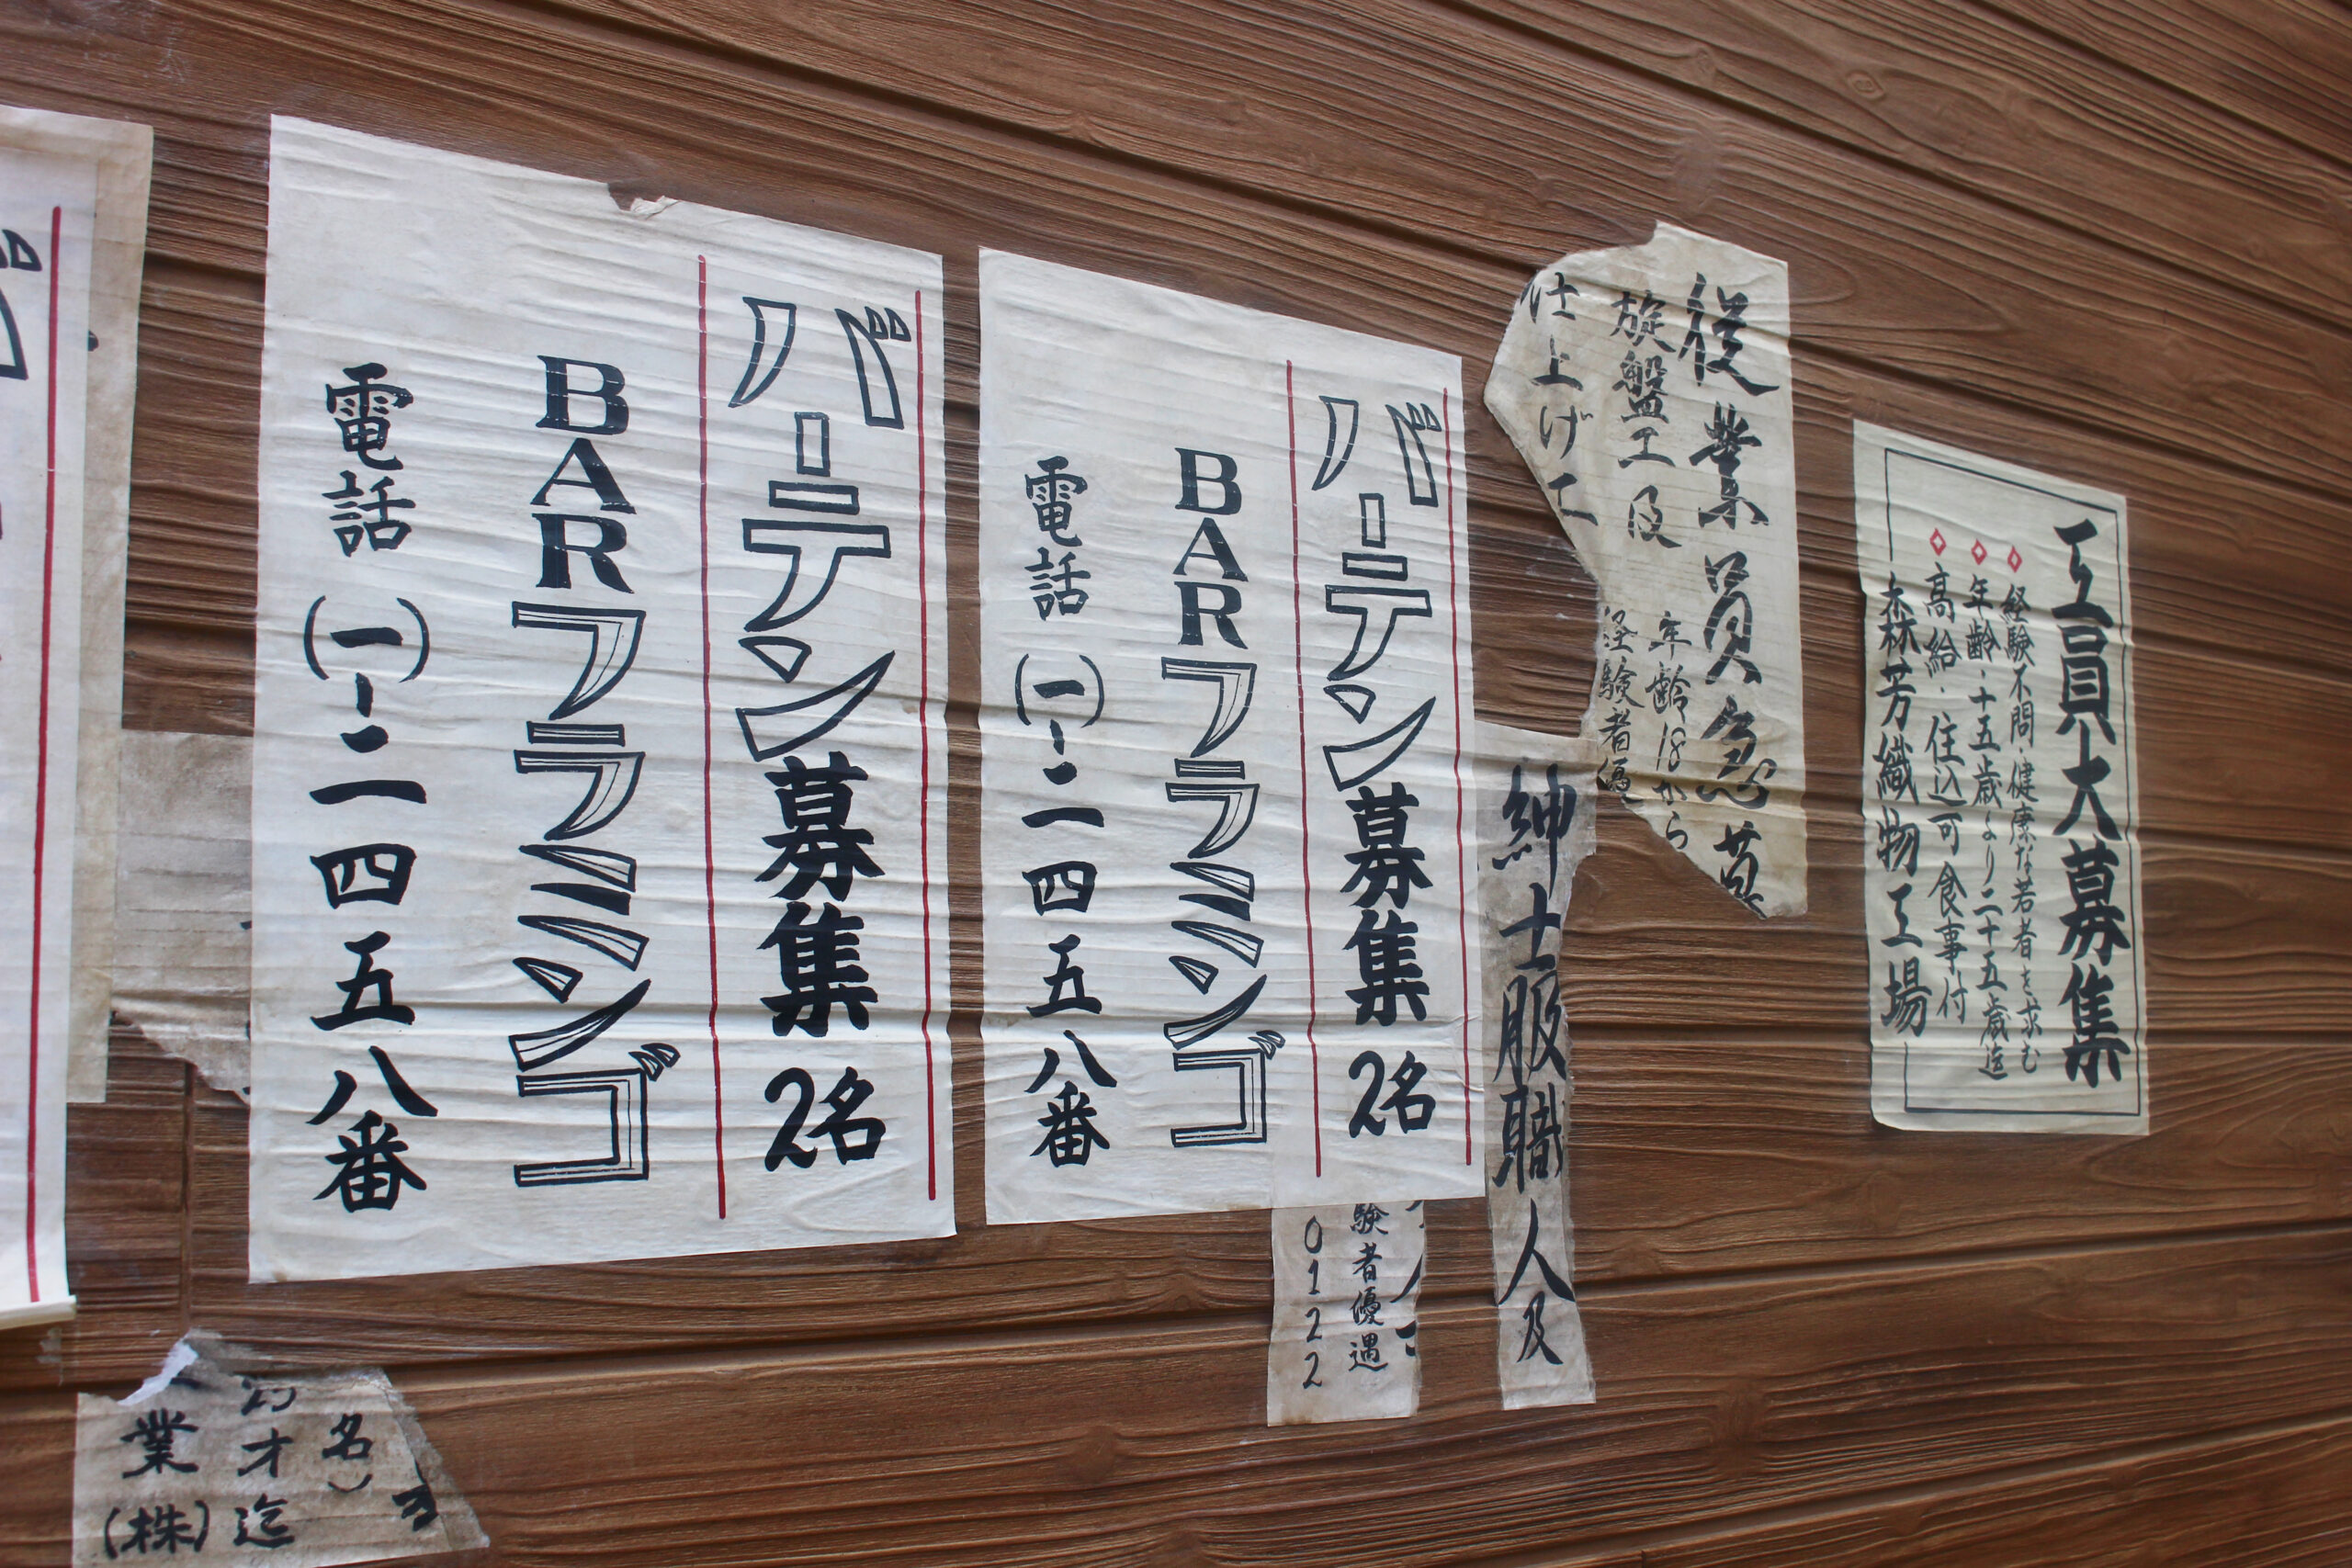 工員大募集
経験不問・健康な若者を求む
年齢・十五歳より二十五歳迄
高給・住込可 食事付
森芳織物工場
従業員急募
旋盤工及
仕上げ工
年齢18から
経験者優
紳士服職人及
験者優遇
0122
バーテン募集 2名
BARフラミンゴ
電話(一)-二四五八番
バーテン募集 2名
BARフラミンゴ
電話(一)-二四五八番
名)
才迄
業(株)